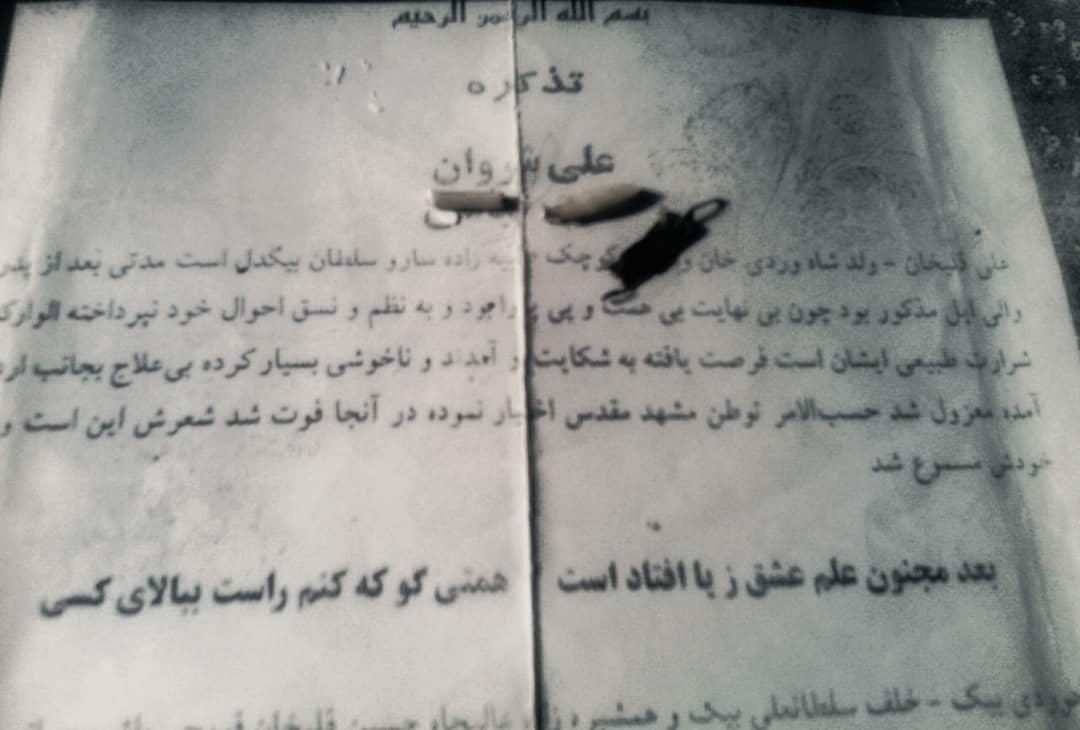 بسم الله الرحمن الرحیم
تذکاره
علی
علی قلیخان - ولد شاه وردی خان کوچک زاده سارو سلطان بیگدل است مدتی بعد از پدر
والی ایل مذکور بود چون بی نهایت بی همت و پی بود و به نظم و نسق احوال خود نپرداخته الوار که
شرارت طبیعی ایشان است فرصت یافته به شکایت او آمدند و ناخوشی بسیار کرده بی‌علاج بجانب
آمده معزول شد حسب‌الامر توطن مشهد مقدس اختیار نموده در آنجا فوت شد شعرش این است و
خودش مسموع شد
بعد مجنون علم عشق ز پا افتاد است همتی کو که کنم راست ببالای کسی
بیک - خلف سلطانعلی بیک و همشیره عالیجاه حسین قلیخان